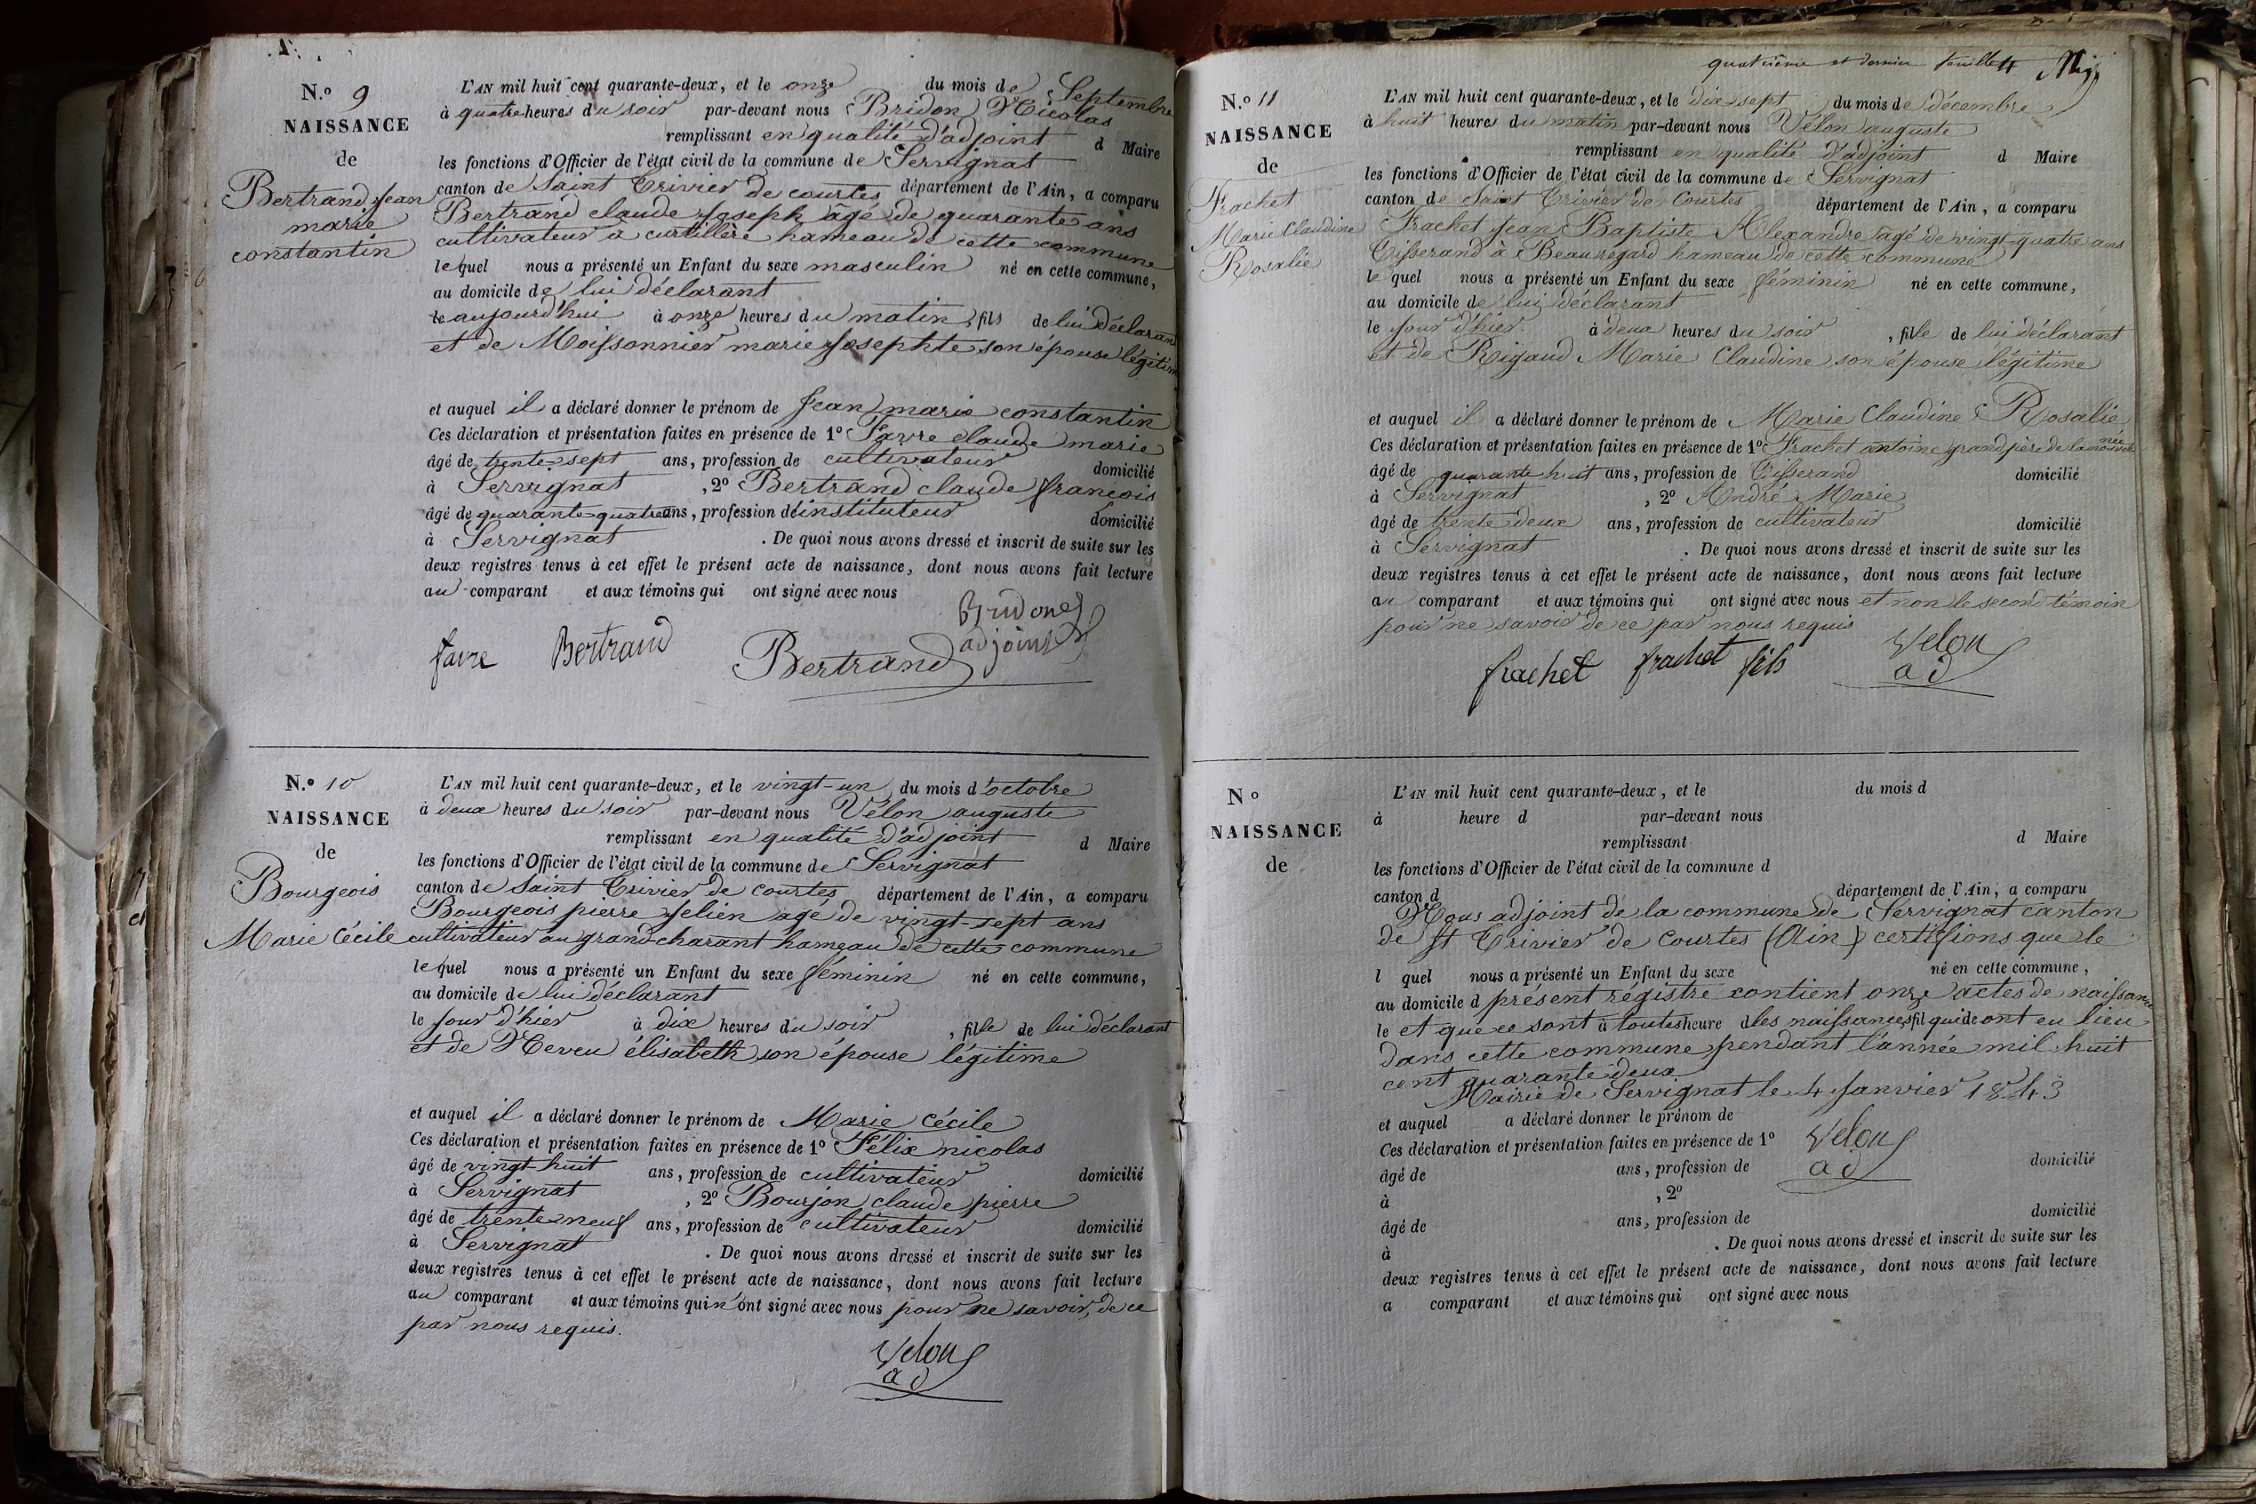 N.º 9
NAISSANCE
de
Bertrand Jean
marie
constantin
L'AN mil huit cent quarante-deux, et le onze du mois de Septembre
à quatre heures du soir par-devant nous Bridon Nicolas
remplissant en qualité d'adjoint d Maire
les fonctions d'Officier de l'état civil de la commune de Servignat
canton de Saint Trivier de courtes département de l'Ain, a comparu
Bertrand claude Joseph agé de quarante ans
cultivateur a curtillère hameau de cette commune
lequel nous a présenté un Enfant du sexe masculin né en cette commune,
au domicile de lui déclarant
le aujourd'hui à onze heures du matin, fils de lui déclarant
et de Moissonnier marie Josephte son épouse légitime
et auquel il a déclaré donner le prénom de Jean marie constantin
Ces déclaration et présentation faites en présence de 1º Favre claude marie
âgé de trente-sept ans, profession de cultivateur domicilié
à Servignat , 2º Bertrand claude françois
âgé de quarante-quatre ans, profession d'instituteur domicilié
à Servignat . De quoi nous avons dressé et inscrit de suite sur les
deux registres tenus à cet effet le présent acte de naissance, dont nous avons fait lecture
au comparant et aux témoins qui ont signé avec nous
Bridon
adjoint
favre Bertrand Bertrand
N.º 10
NAISSANCE
de
Bourgeois
Marie Cécile
L'AN mil huit cent quarante-deux, et le vingt-un du mois d'octobre
à deux heures du soir par-devant nous Vélon auguste
remplissant en qualité d'adjoint d Maire
les fonctions d'Officier de l'état civil de la commune de Servignat
canton de Saint Trivier de courtes département de l'Ain, a comparu
Bourgeois pierre Jelien agé de vingt-sept ans
cultivateur au grand-charant hameau de cette commune
lequel nous a présenté un Enfant du sexe féminin né en cette commune,
au domicile de lui déclarant
le jour d'hier à dix heures du soir , fille de lui déclarant
et de Neveu élisabeth son épouse légitime
et auquel il a déclaré donner le prénom de Marie Cécile
Ces déclaration et présentation faites en présence de 1º Félix nicolas
âgé de vingt-huit ans, profession de cultivateur domicilié
à Servignat , 2º Bourjon claude pierre
âgé de trente neuf ans, profession de cultivateur domicilié
à Servignat . De quoi nous avons dressé et inscrit de suite sur les
deux registres tenus à cet effet le présent acte de naissance, dont nous avons fait lecture
au comparant et aux témoins qui n'ont signé avec nous pour ne savoir, de ce
par nous requis.
Velon
ad
quatrième et dernier feuille
N.º 11
NAISSANCE
de
Frachet
Marie Claudine
Rosalie
L'AN mil huit cent quarante-deux, et le dix sept du mois de décembre
à huit heures du matin par-devant nous Vélon auguste
remplissant en qualité d'adjoint d Maire
les fonctions d'Officier de l'état civil de la commune de Servignat
canton de Saint Trivier de Courtes département de l'Ain, a comparu
Frachet Jean Baptiste Alexandre agé de vingt-quatre ans
Tisserand à Beauregard hameau de cette commune
le quel nous a présenté un Enfant du sexe féminin né en cette commune,
au domicile de lui déclarant
le jour d'hier à deux heures du soir , fille de lui déclarant
et de Rigaud Marie Claudine son épouse légitime
et auquel il a déclaré donner le prénom de Marie Claudine Rosalie
Ces déclaration et présentation faites en présence de 1º Frachet antoine grand père de la née
âgé de quarante huit ans, profession de Tisserand domicilié
à Servignat , 2º André Marie
âgé de trente deux ans, profession de cultivateur domicilié
à Servignat . De quoi nous avons dressé et inscrit de suite sur les
deux registres tenus à cet effet le présent acte de naissance, dont nous avons fait lecture
au comparant et aux témoins qui ont signé avec nous et non le second témoin
pour ne savoir de ce par nous requis
Velon
ad
frachet frachet fils
Nº
NAISSANCE
de
L'AN mil huit cent quarante-deux, et le du mois d
à heure d par-devant nous
remplissant d Maire
les fonctions d'Officier de l'état civil de la commune d
canton d département de l'Ain, a comparu
Nous adjoint de la commune de Servignat canton
de St Trivier de courtes (Ain) certifions que le
l quel nous a présenté un Enfant du sexe né en cette commune,
au domicile d présent régistre contient onze actes de naissance
le et que ce sont à toutes heure d les naissances fil qui de ont eu lieu
dans cette commune pendant l'année mil huit
cent quarante deux
Mairie de Servignat le 4 Janvier 1843
et auquel a déclaré donner le prénom de
Ces déclaration et présentation faites en présence de 1º Velon
âgé de ans, profession de ad domicilié
à , 2º
âgé de ans, profession de domicilié
à . De quoi nous avons dressé et inscrit de suite sur les
deux registres tenus à cet effet le présent acte de naissance, dont nous avons fait lecture
a comparant et aux témoins qui ont signé avec nous